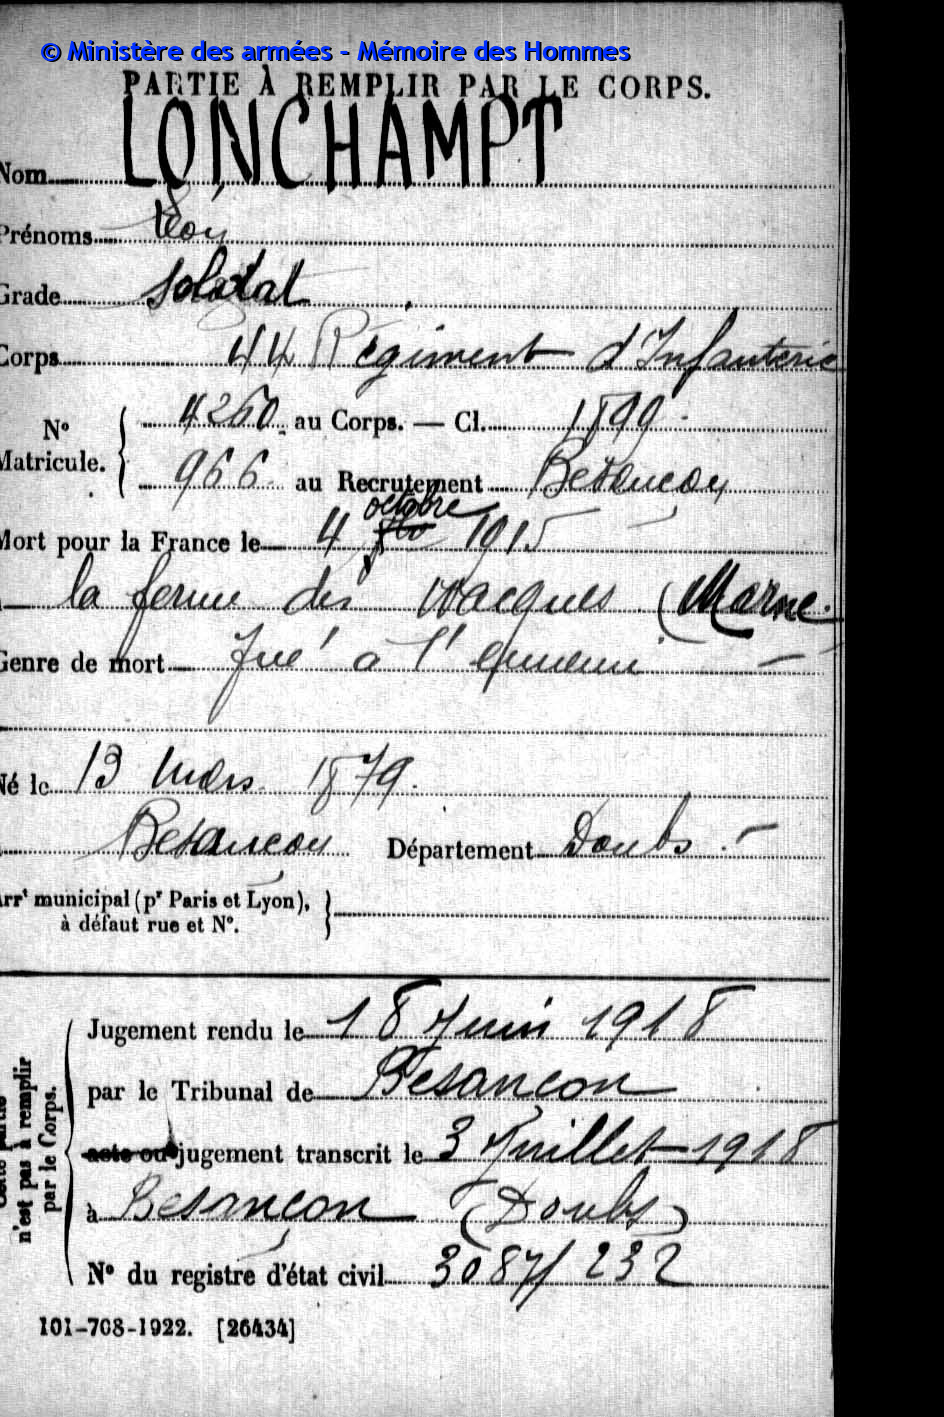 © Ministère des armées - Mémoire des Hommes
PARTIE À REMPLIR PAR LE CORPS.
Nom LONCHAMPT
Prénoms Léon
Grade soldat
Corps 44 Régiment d'Infanterie
N° Matricule. 4260 au Corps. — Cl. 1899
966 au Recrutement Besançon
octobre
Mort pour la France le 4 1915
la ferme des Wacques (Marne
Genre de mort Tué à l'ennemi —
Né le 13 mars 1879.
Besançon Département Doubs . —
Arrt municipal (pr Paris et Lyon),
à défaut rue et N°.
Cette partie
n'est pas à remplir
par le Corps.
Jugement rendu le 18 Juin 1918
par le Tribunal de Besançon
acte ou jugement transcrit le 3 Juillet 1918
à Besançon (Doubs)
N° du registre d'état civil 3087/232
101-708-1922. [26434]